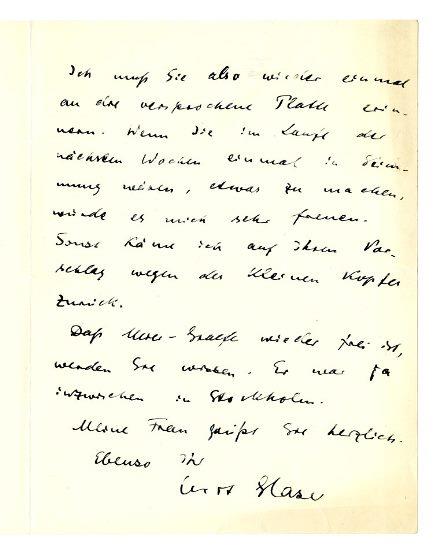 Ich muß Sie also wieder einmal
an die versprochene Platte erin-
nern. Wenn Sie im Laufe der
nächsten Wochen einmal in Stim-
mung wären, etwas zu machen,
würde es mich sehr freuen.
Sonst käme ich auf Ihren Vor-
schlag wegen des kleinen Kopfes
zurück.
Daß Meier-Graefe wieder frei ist,
werden Sie wissen. Er war ja
inzwischen in Stockholm.
Meine Frau grüßt Sie herzlich.
Ebenso Ihr
Curt Glaser